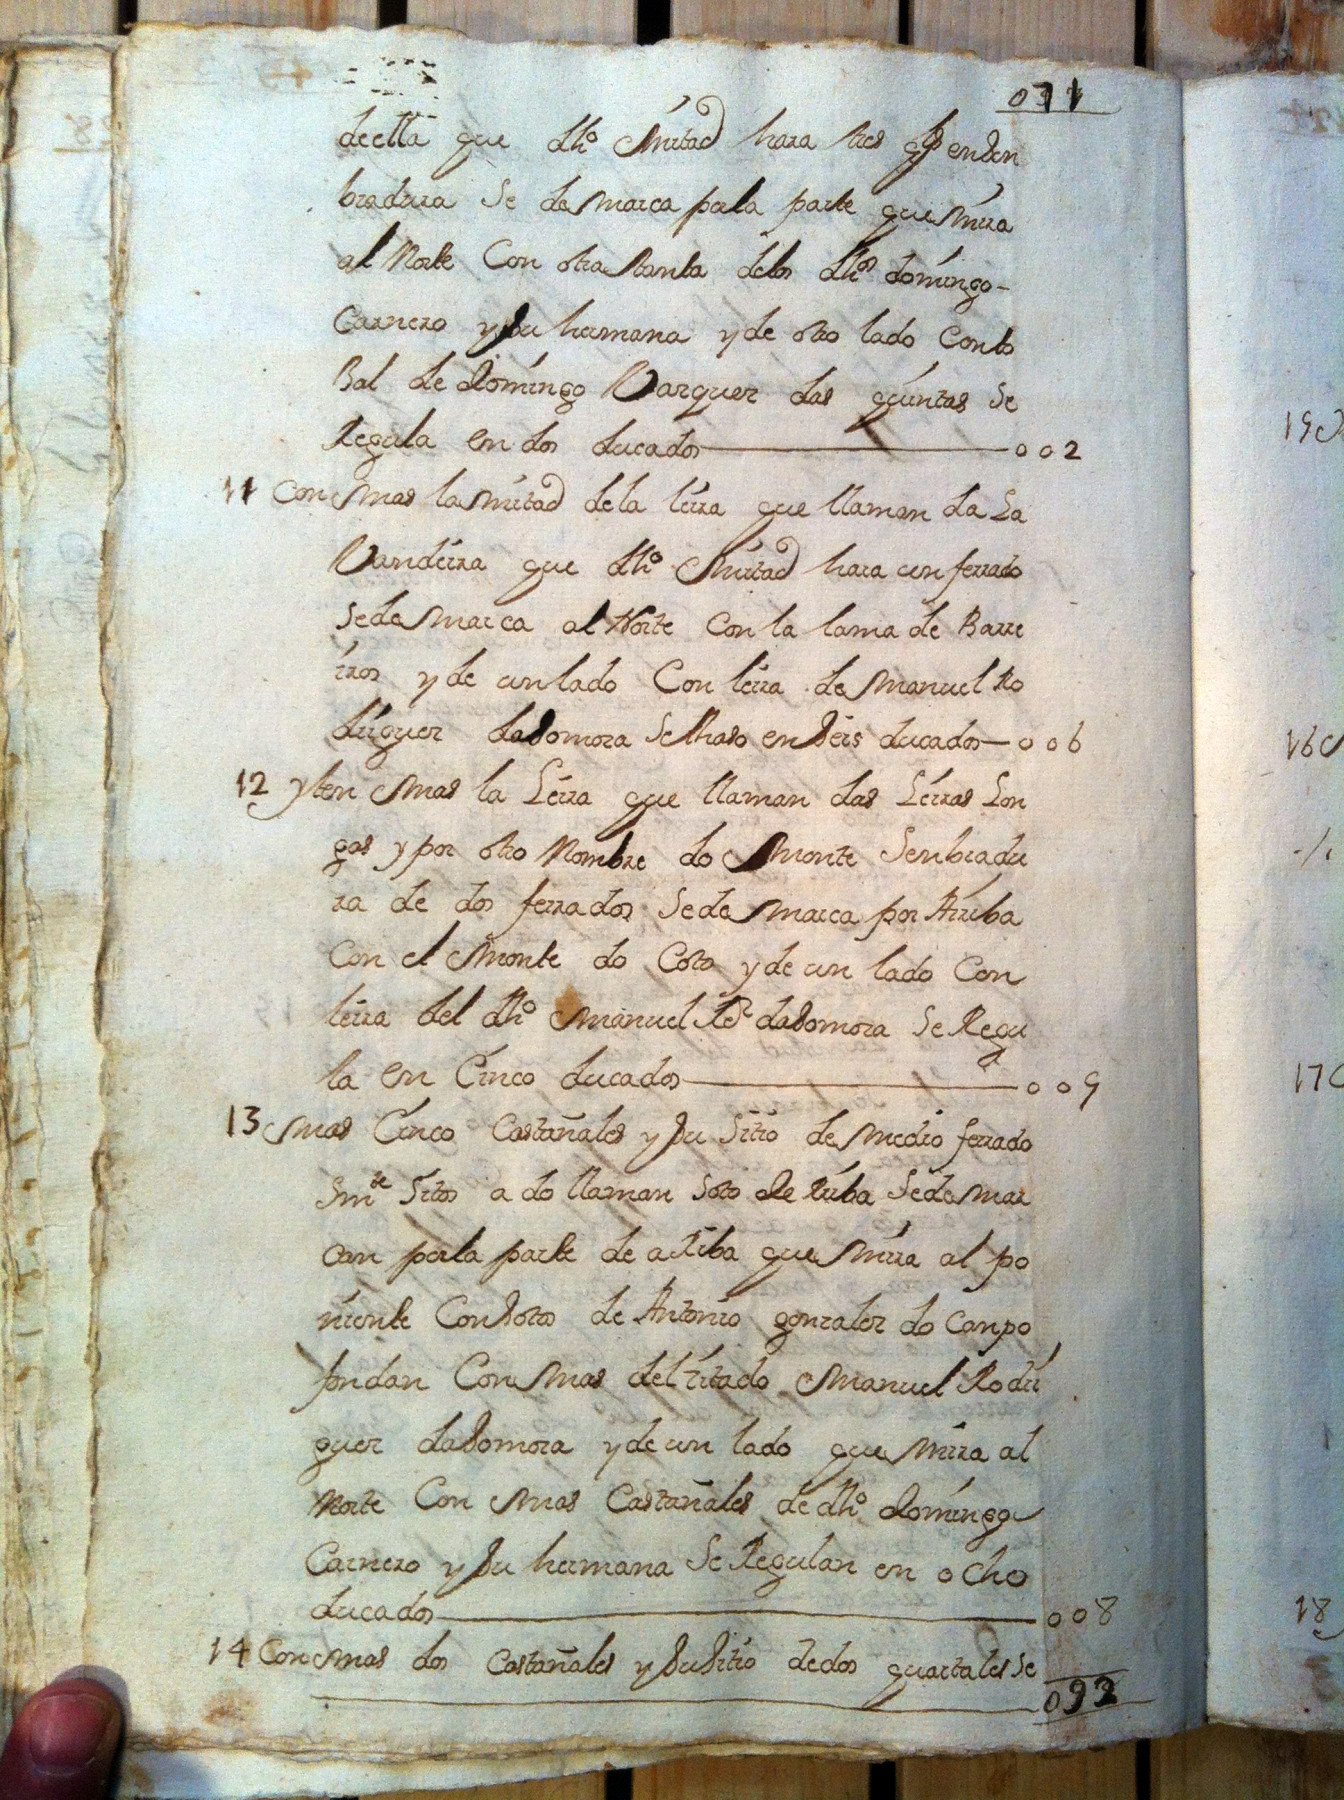 071
deella que dho Mitad hara tres qs en Sen
bradura Se deMarca porla parte queMira
al Norte Con otra tanta delos dhos domingo-
Carnero y Su hermana y de otro lado Conto
Bal de Domingo Vazquez das quintas Se
Regula en dos ducados 002
11 Con Mas la Mitad dela leira que llaman da La
Vandeira que dho Mitad hara un ferrado
SedeMarca al Norte Con la lama de Barre
iros y de un lado Con leira de Manuel Ro
driguez daSomoza Se thaso en Seis ducados 006
12 yten Mas la Leira que llaman das Leiras Lon
gas y por otro Nombre do Monte Senbradu
ra de dos ferrados SedeMarca por Arriba
Con el Monte do Coto y de un lado Con
leira del dho Manuel Rez daSomoza Se Regu
la en Cinco ducados 005
13 Mas Cinco Castañales y Su Sitio de Medio ferrado
Smte Sitos a do llaman Soto de riba SedeMar
can porla parte de arriba queMira al po
niente ConSotos de Antonio gonzalez do Canpo
fondan Con Mas del Zitado Manuel Rodri
guez daSomoza y de un lado queMira al
Norte Con Mas Castañales de dho Domingo
Carnero y Su hermana Se Regulan en ocho
ducados 008
14 Con Mas dos Castañales y SuSitio de dos quartales Se
092
15
16
17
18